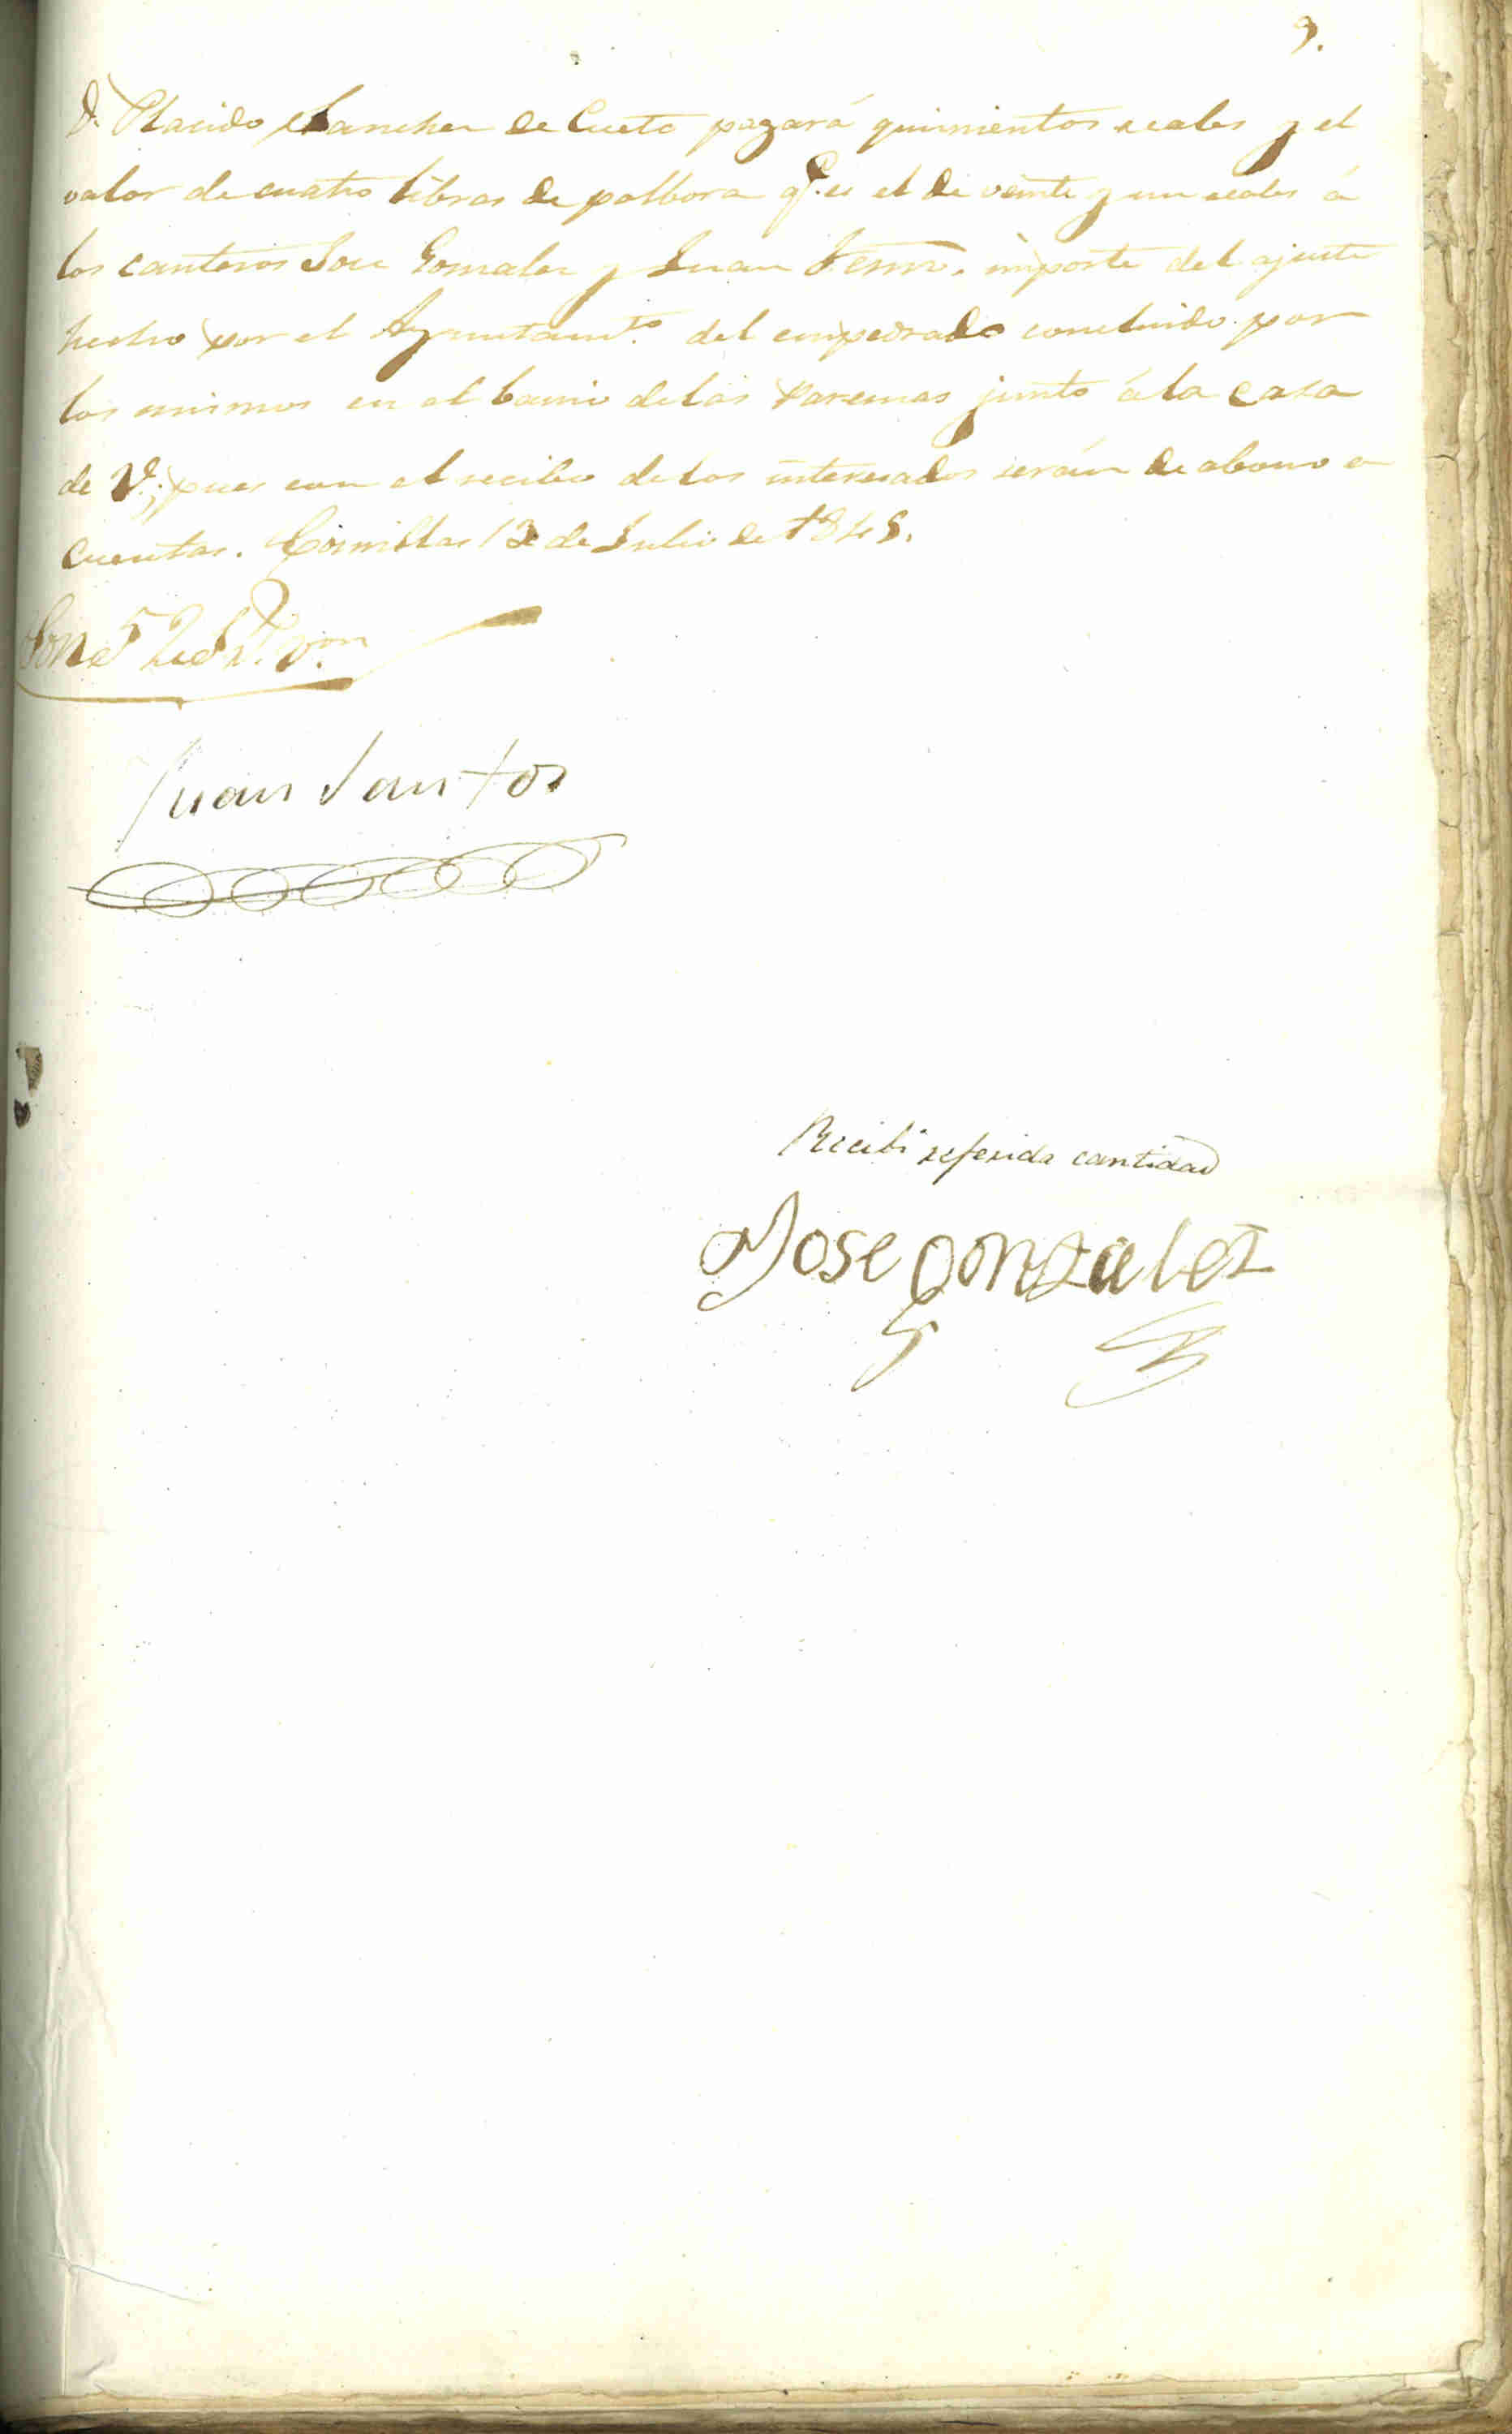 9.
D. Placido Sanchez de Cueto pagará quinientos reales y el
valor de cuatro libras de polbora q.e es el de veinte y un reales á
los canteros Jose Gonzalez y Juan Fernz. importe del ajuste
hecho por el Ayuntam.to del empedrado concluido por
los mismos en el barrio de las junto á la casa
de V.; pues con el recibo de los interesados serán de abono en
cuentas. Comillas 13 de Julio de 1848.
Son 521 r.s v.on
Juan Santos
Recibi referida cantidad
Jose Gonzalez